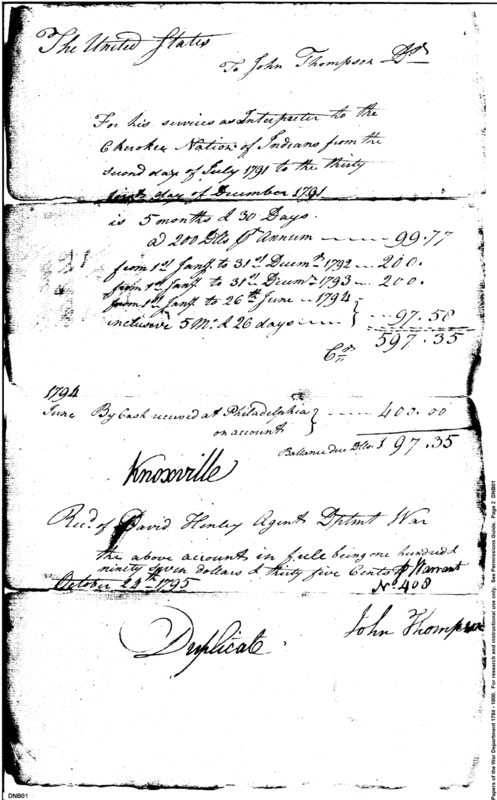 The United States
To John Thompson Dr.
For his services as Interpreter to the
Cherokee Nation of Indians from the
second day of July 1791 to the thirty
first day of December 1791
is 5 months & 30 Days.
a 200 Dlls pr Annum —— 99.77
from 1st Jany to 31st Decemr 1792 — 200.
from 1st Jany to 31st Decemr 1793 — 200.
from 1st Jany to 26th June — 1794
inclusive 5 Ms. & 26 days — 97.58
597.35
Cr
1794
June By Cash received at Philadelphia — 400.00
on account
Ballance due Dlls. $ 197.35
Knoxville
Recd. of David Henley Agent Dptmt War
the above account in full being one hundred
ninety seven dollars & thirty five Cents pr Warrant
October 24th 1795 No. 408
Duplicate. John Thompson
DNB01
Papers of the War Department 1784 - 1800. For research and instructional use only. See Permissions Guide. Page 2 DNB01